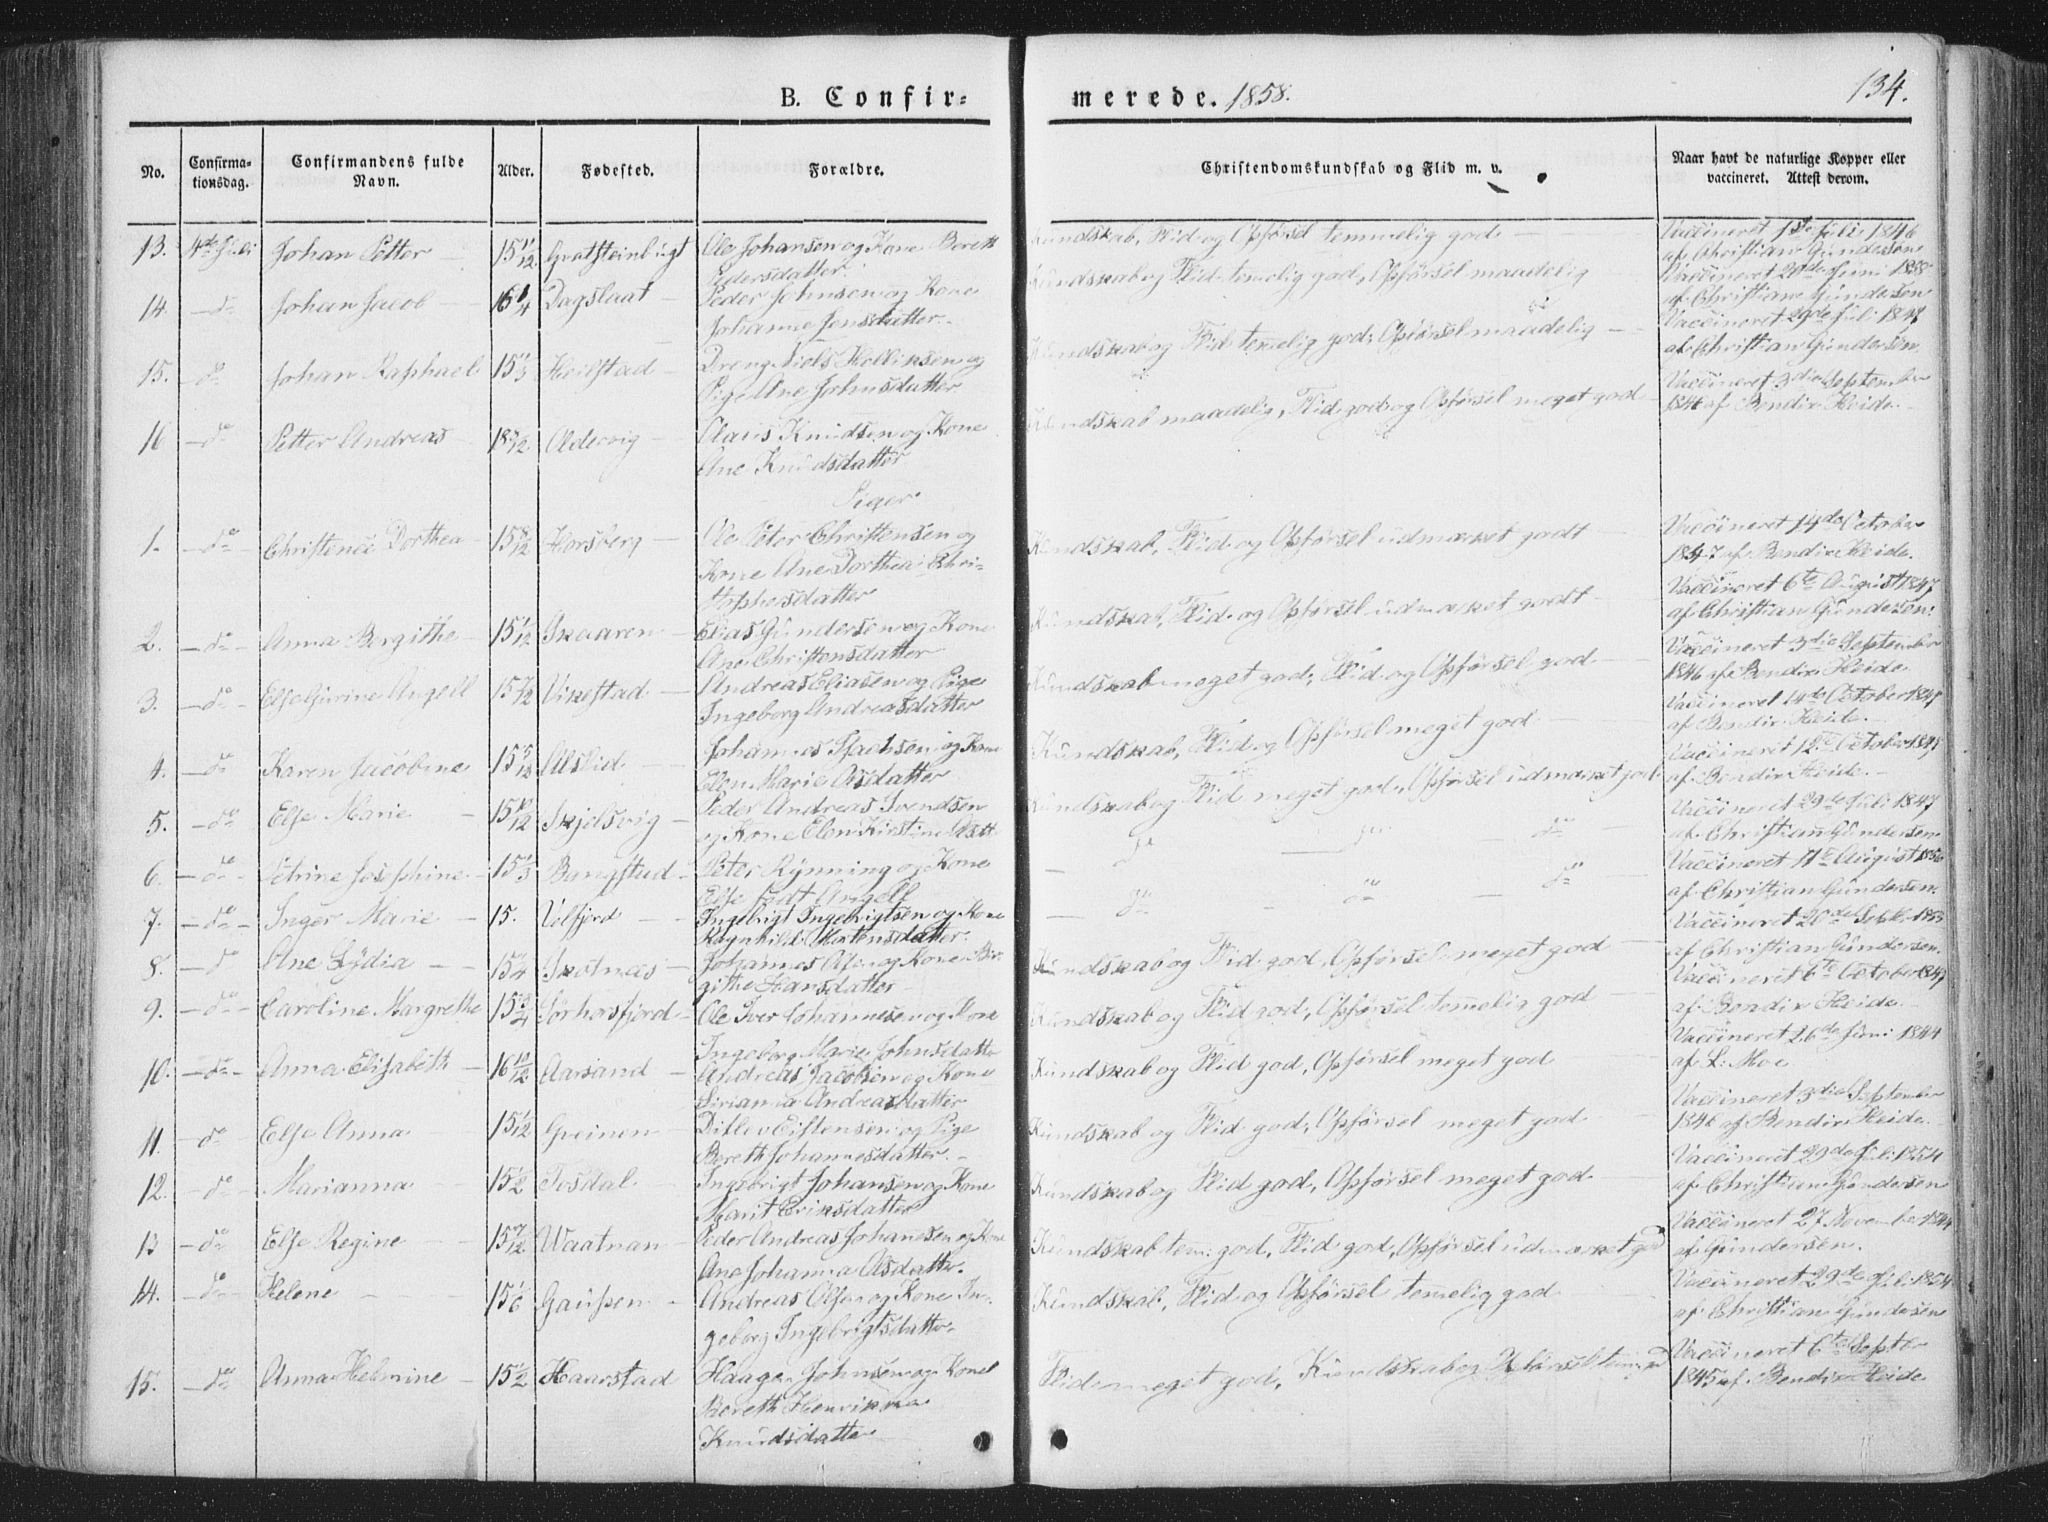 B. Confir-
merede. 1858.
134.
No.
Confirma-
tionsdag.
Confirmandens fulde
Navn.
Alder.
Fødested.
Forældre.
Christendomskundskab og Flid m. v.
Naar havt de naturlige Kopper eller
vaccineret. Attest derom.
13. 4de Juli Johan Petter 15 11/12 Ole Johansen og Kone Bereth
Pedersdatter
Kundskab, Flid og Opførsel temmelig god
Vaccineret 1ste Juli 1846
af Christian Gundersen
14. do Johan Jacob Dagslaat Peder Johnsen og Kone
Johanne Jensdatter
Kundskab og Flid temelig god, Opførsel maadelig
Vaccineret Juni 1858
af Christian Gundersen
15. do Johan Raphael 15 1/3 Heilstad Dreng Niels Kollinsen og
Pige Ane Johnsdatter
Kundskab og Flid temelig god, Opførsel maadelig
Vaccineret 29de Juli
af Christian Gundersen
16 do Petter Andreas Oldervig Claus Knudsen og Kone
Ane Knudsdatter
Kundskab maadelig, Flid god og Opførsel meget god
Vaccineret 3die September
1846 af Bendix Heide
Piger
1. do Christence Dorthea 15 8/12 Horsberg Ole Peter Christensen og
Kone Ane Dorthea Chri-
stophersdatter
Kundskab, Flid og Opførsel udmærket godt
Vaccineret 14de October
1847 af Bendix Heide.
2. do Anna Bergithe 15 1/12 Skaaren Elias Gundersen og Kone
Ane Christensdatter
Kundskab, Flid og Opførsel udmærket godt
Vaccineret 6te August 1847
af Christian Gundersen.
3. do Else Gurine Angell 15 7/12 Vikestad Andreas Eliasen og Pige
Ingeborg Andreasdatter
Kundskab meget god, Flid og Opførsel god
Vaccineret 3die September
1846 af Bendix Heide
4. do Karen Jacobine 15 5/12 Olslid Johannes Isachsen og Kone
Elen Marie Olsdatter
Kundskab, Flid og Opførsel meget god
Vaccineret 14de October
af Bendix Heide.
5. do Else Marie 15 10/12 Skjelsvig Peder Andreas Svendsen
og Kone Elen Kirstine
Kundskab og Flid meget god, Opførsel udmærket god
Vaccineret 12te October
af Bendix Heide.
6. do Petrine Josephine 15 1/3 Bangstad Peter Rynning og Kone
Else født Angell
do do do
Vaccineret 29de Juli 1847
af Christian Gundersen
7. do Inger Marie 15. Velfjord Ingebrigt Ingebrigtsen og Kone
Ragnhild Mortensdatter
do do do
Vaccineret August
af Christian Gundersen.
8. do Ane Lydia Skotnæs Johannes Olsen og Kone Bir-
githe Hansdatter
Kundskab og Flid god, Opførsel meget god
Vaccineret 20de Septb.
af Christian Gundersen.
9. do Caroline Margrethe 15 3/4 Sørhorsfjord Ole Iver Johannesen og Kone
Ingeborg Marie Johnsdatter
Kundskab og Flid god, Opførsel temmelig god
Vaccineret 6te October
af Bendix Heide.
10. do Anna Elisabeth 16 10/12 Aarsand Andreas Jacobsen og Kone
Andreasdatter
Kundskab og Flid god, Opførsel meget god
Vaccineret 26de Juni 1844
af L. Moe
11. do Else Anna 15 1/12 Greinen Ditlev Eistensen og Pige
Bereth Johannesdatter.
Kundskab og Flid god, Opførsel meget god
Vaccineret 3die September
1846 af Bendix Heide.
12. do Marianna 15 1/2 Tosdal Ingebrigt Johansen og Kone
Marit Eriksdatter
Kundskab og Flid god, Opførsel meget god
Vaccineret 29de Juli 1854
af Christian Gundersen
13 do Else Regine 15 7/12 Waatnan Peder Andreas Johansen og Kone
Ane Johanna Olsdatter.
Kundskab tem: god, Flid god, Opførsel udmærket god
Vaccineret 27 November 1844
af Gundersen.
14. do Helene 15 1/6 Gaupen Andreas Olsen og Kone In-
geborg Ingebrigtsdatter
Kundskab, Flid og Opførsel temelig god
Vaccineret 29de Juli 1854
af Christian Gundersen
15. do Anna Helmine 15 1/2 Haarstad Haagen Johnsen og Kone
Bereth Henrikka
Knudsdatter
Flid meget god, Kundskab og Opførsel tem: god
Vaccineret 6te Septer
1845 af Bendix Heide